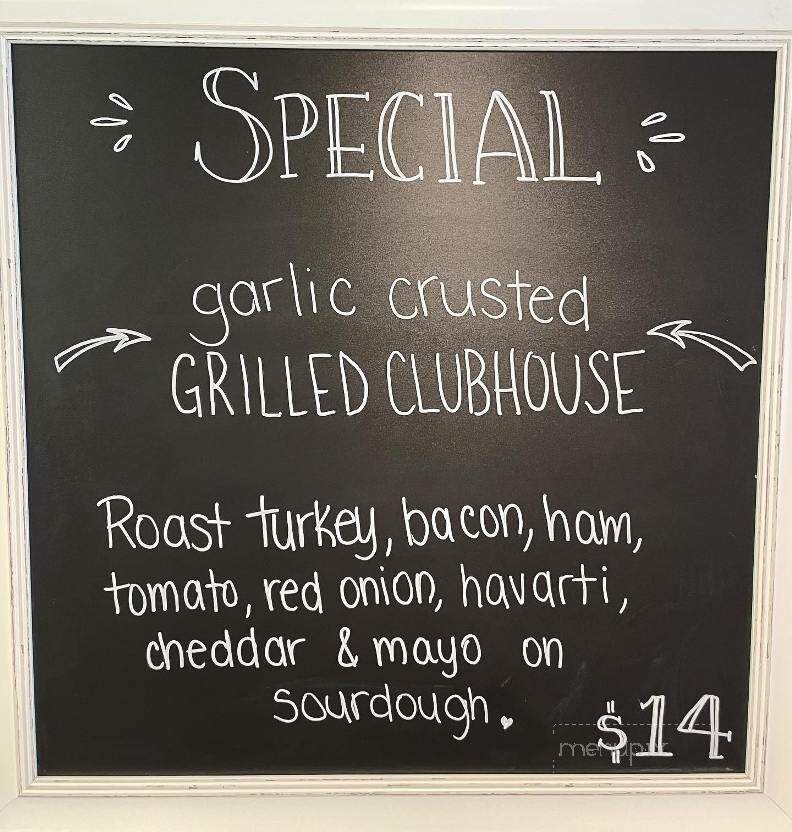 SPECIAL
garlic crusted
GRILLED CLUBHOUSE
Roast turkey, bacon, ham,
tomato, red onion, havarti,
cheddar & mayo on
sourdough.
$14
menupix